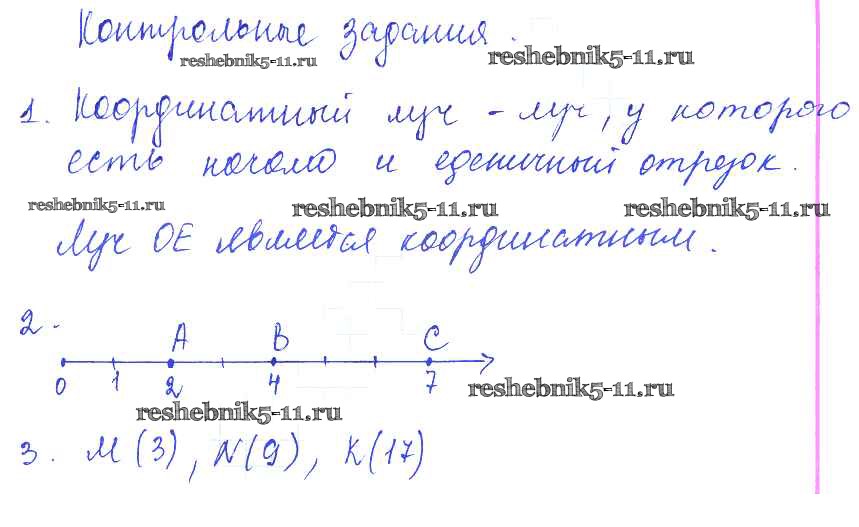 Контрольные задания.
reshebnik5-11.ru reshebnik5-11.ru
1. Координатный луч - луч, у которого
есть начало и еденичный отрезок.
reshebnik5-11.ru reshebnik5-11.ru reshebnik5-11.ru
Луч OE является координатным.
2.
A B C
0 1 2 4 7
reshebnik5-11.ru
reshebnik5-11.ru
3. M(3), N(9), K(17)